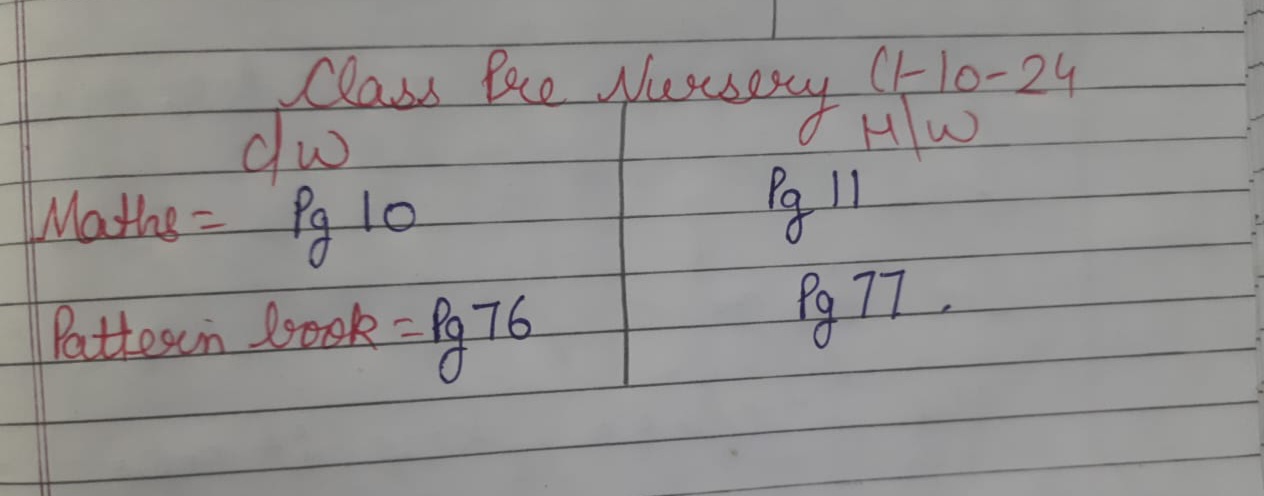 Class Pre Nursery (1-10-24
C/W H/W
Maths = Pg 10 Pg 11
Pattern book = Pg 76 Pg 77.